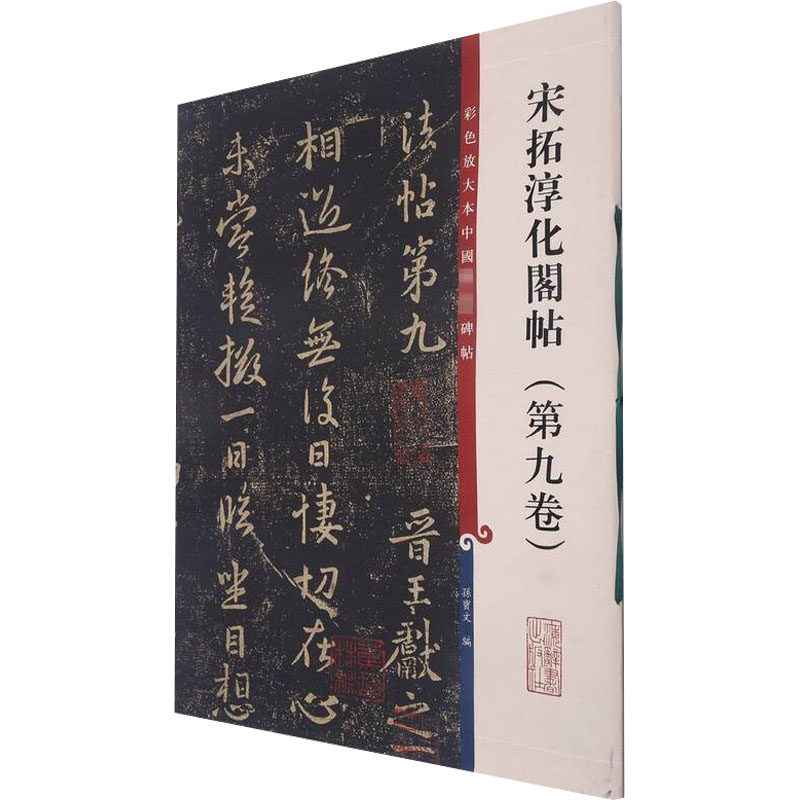 宋拓淳化閣帖（第九卷）
彩色放大本中國
碑帖
孫寶文 編
法帖第九 晉王獻之一
相過終無復日悽切在心
未嘗暫掇一日臨坐目想